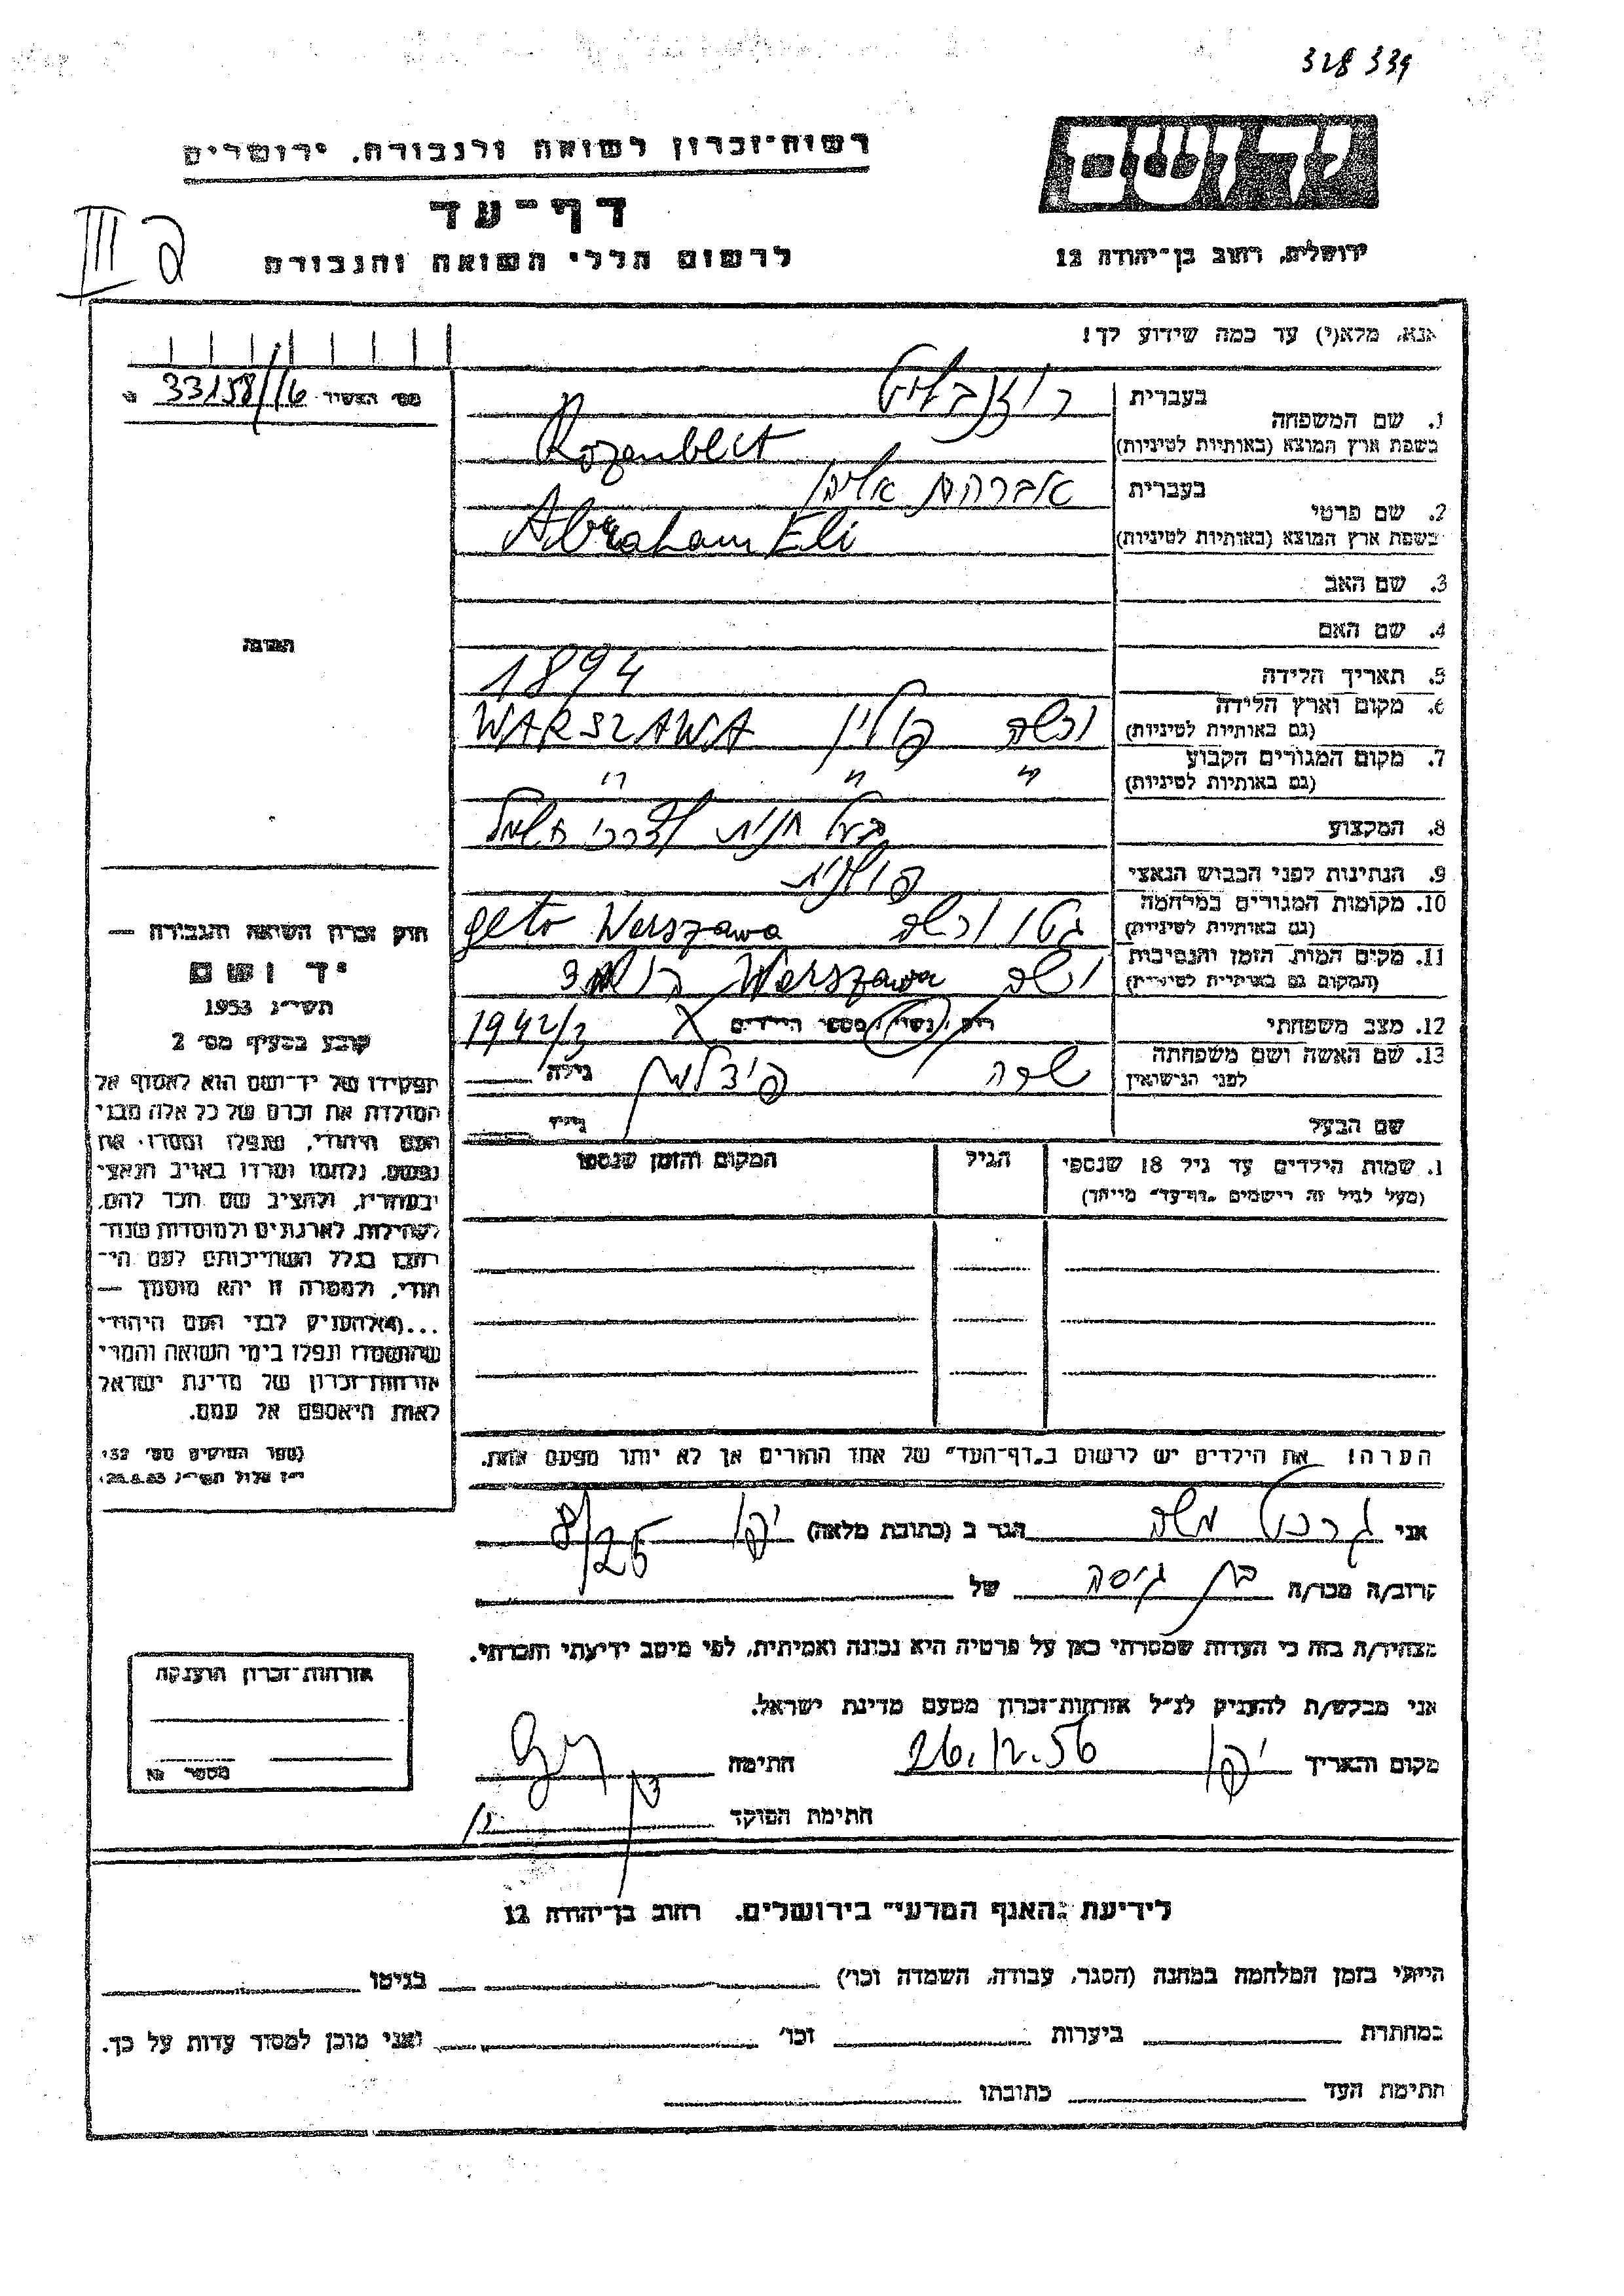 328 339
רשות־זכרון לשואה ולגבורה, ירושלים
יד ושם
דף־עד
III
לרשום חללי השואה והגבורה
ירושלים, רחוב בן־יהודה 12
אנא, מלא(י) עד כמה שידוע לך!
33158/16
1. שם המשפחה
בעברית
רוזנבליט
בשפת ארץ המוצא (באותיות לטיניות)
Rozenblit
2. שם פרטי
בעברית
אברהם
בשפת ארץ המוצא (באותיות לטיניות)
Abraham Eli
3. שם האב
4. שם האם
5. תאריך הלידה 1894
6. מקום וארץ הלידה
(גם באותיות לטיניות)
ורשה פולין WARSZAWA
7. מקום המגורים הקבוע
(גם באותיות לטיניות)
" " "
8. המקצוע בעל חנות לצרכי חשמל
9. הנתינות לפני הכבוש הנאצי פולנית
10. מקומות המגורים במלחמה
(גם באותיות לטיניות)
גטו ורשה geto Warszawa
11. מקום המות, הזמן והנסיבות
(המקום גם באותיות לטיניות)
ורשה Warszawa
12. מצב משפחתי
רווק / נשוי / מספר הילדים
1942/3
13. שם האשה ושם משפחתה
לפני הנישואין
שרה גילה
שם הבעל גילו
1. שמות הילדים עד גיל 18 שנספו
(מעל לגיל זה רישמים „דף־עד” מייחד)
הגיל
המקום והזמן שנספו
הערה! את הילדים יש לרשום ב„דף־העד” של אחד ההורים אך לא יותר מפעם אחת.
חוק זכרון השואה והגבורה —
יד ושם
תשי״ג 1953
קובע בסעיף מס׳ 2
תפקידו של יד־ושם הוא לאסוף אל
המולדת את זכרם של כל אלה מבני
העם היהודי, שנפלו ומסרו את
נפשם, נלחמו ומרדו באויב הנאצי
ובעוזריו, ולהציב שם וזכר להם,
לקהילות, לארגונים ולמוסדות שנח־
רבו בגלל השתייכותם לעם הי־
הודי, ולמטרה זו יהא מוסמך —
...(4)להעניק לבני העם היהודי
שהושמדו ונפלו בימי השואה והמרי
אזרחות־זכרון של מדינת ישראל
לאות היאספם אל עמם.
(ספר החוקים מס׳ 132,
י״ז אלול תשי״ג 28.8.53)
אני משה הגר ב (כתובת מלאה) יפו 8/25
קרוב/ה מכר/ה בן גיסה של
מצהיר/ה בזה כי העדות שמסרתי כאן על פרטיה היא נכונה ואמיתית, לפי מיטב ידיעתי והכרתי.
אני מבקש/ת להעניק לנ״ל אזרחות־זכרון מטעם מדינת ישראל.
מקום והתאריך יפו 26.12.56 חתימה
חתימת הפוקד
אזרחות־זכרון הוענקה
מספר
לידיעת „האגף המדעי” בירושלים, רחוב בן־יהודה 12
הייתי בזמן המלחמה במחנה (הסגר, עבודה, השמדה וכו׳) בגיטו
במחתרת ביערות וכו׳ ואני מוכן למסור עדות על כך.
חתימת העד כתובתו